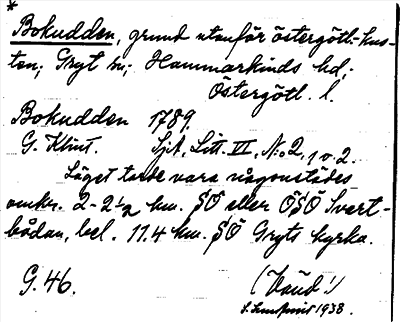 *
Bokudden, grund utanför östergötl.-kus-
ten; Gryt sn; Hammarkinds hd;
Östergötl. l.
Bokudden 1789.
G. Klint. Sjk. Litt. VI, N:o 2, 1 v. 2.
Läget torde vara någonstädes
omkr. 2-2 1/2 km. SÖ eller ÖSÖ Svart-
bådan, bel. 11.4 km. SÖ Gryts kyrka.
G. 46. (Vāud!)
1938.